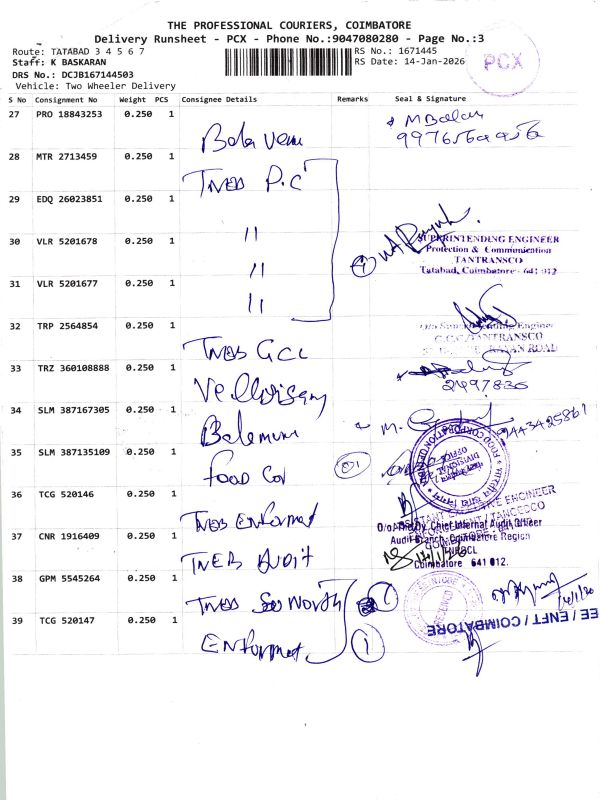 THE PROFESSIONAL COURIERS, COIMBATORE
Delivery Runsheet - PCX - Phone No.:9047080280 - Page No.:3
Route: TATABAD 3 4 5 6 7
RS No.: 1671445
Staff: K BASKARAN
RS Date: 14-Jan-2026
DRS No.: DCJB167144503
Vehicle: Two Wheeler Delivery
PCX
S No Consignment No Weight PCS Consignee Details Remarks Seal & Signature
27 PRO 18843253 0.250 1
M Balan
Bala
28 MTR 2713459 0.250 1 TNEB P.C
29 EDQ 26023851 0.250 1
30 VLR 5201678 0.250 1 "
SUPERINTENDING ENGINEER
Protection & Communication
TANTRANSCO
Tatabad, Coimbatore - 641 012
"
31 VLR 5201677 0.250 1 "
32 TRP 2564854 0.250 1 TNEB GCC
33 TRZ 360108888 0.250 1
2497836
34 SLM 387167305 0.250 1
9443425861
35 SLM 387135109 0.250 1 Food
FOOD CORPORATION OF INDIA
36 TCG 520146 0.250 1 TNEB
37 CNR 1916409 0.250 1 TNEB AUDIT
O/o The Dy. Chief Internal Audit Officer
Audit Branch, Coimbatore Region
Coimbatore 641 012.
38 GPM 5545264 0.250 1 TNEB
39 TCG 520147 0.250 1
EE / ENFT / COIMBATORE